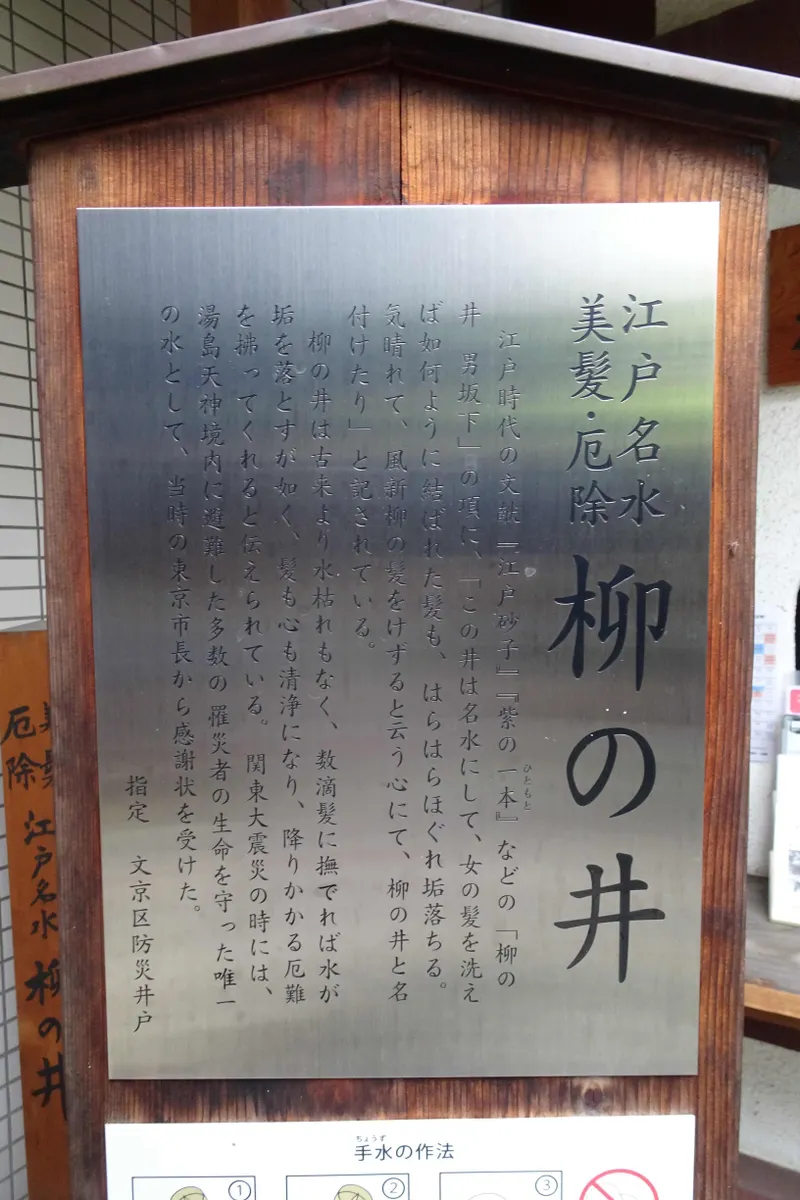 江戸名水
美髪・厄除
柳の井
江戸時代の文献『江戸砂子』『紫の一本』などの「柳の
ひともと
井 男坂下」の項に、「この井は名水にして、女の髪を洗え
ば如何ように結ばれた髪も、はらはらほぐれ垢落ちる。
気晴れて、風新柳の髪をけずると云う心にて、柳の井と名
付けたり」と記されている。
柳の井は古来より水枯れもなく、数滴髪に撫でれば水が
垢を落とすが如く、髪も心も清浄になり、降りかかる厄難
を拂ってくれると伝えられている。関東大震災の時には、
湯島天神境内に避難した多数の罹災者の生命を守った唯一
の水として、当時の東京市長から感謝状を受けた。
指定 文京区防災井戸
美髪
厄除
江戸名水
柳の井
ちょうず
手水の作法
1
2
3